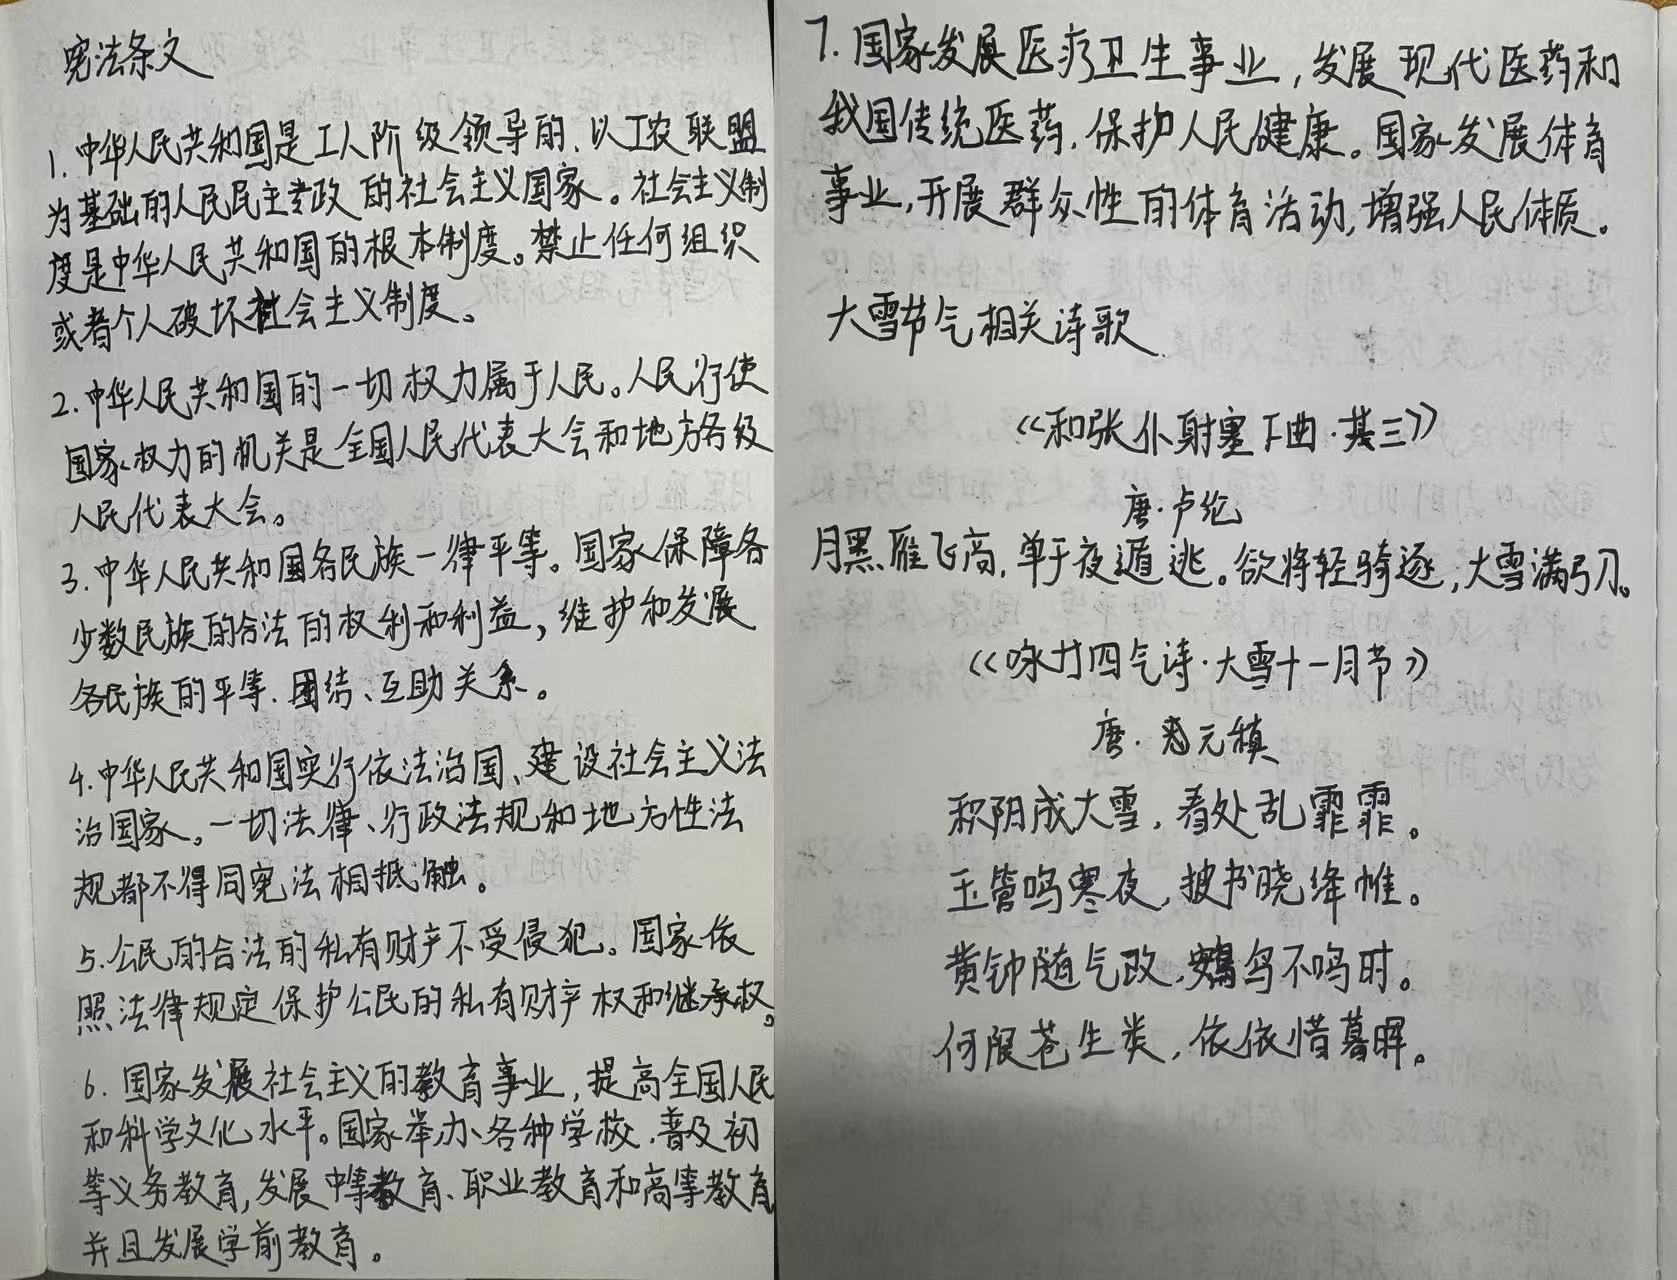 宪法条文
1.中华人民共和国是工人阶级领导的、以工农联盟
为基础的人民民主专政的社会主义国家。社会主义制
度是中华人民共和国的根本制度。禁止任何组织
或者个人破坏社会主义制度。
2.中华人民共和国的一切权力属于人民。人民行使
国家权力的机关是全国人民代表大会和地方各级
人民代表大会。
3.中华人民共和国各民族一律平等。国家保障各
少数民族的合法的权利和利益，维护和发展
各民族的平等、团结、互助关系。
4.中华人民共和国实行依法治国、建设社会主义法
治国家。一切法律、行政法规和地方性法
规都不得同宪法相抵触。
5.公民的合法的私有财产不受侵犯。国家依
照法律规定保护公民的私有财产权和继承权。
6.国家发展社会主义的教育事业，提高全国人民
和科学文化水平。国家举办各种学校，普及初
等义务教育，发展中等教育、职业教育和高等教育
并且发展学前教育。
7.国家发展医疗卫生事业，发展现代医药和
我国传统医药，保护人民健康。国家发展体育
事业，开展群众性的体育活动，增强人民体质。
大雪节气相关诗歌
《和张仆射塞下曲·其三》
唐·卢纶
月黑雁飞高，单于夜遁逃。欲将轻骑逐，大雪满弓刀。
《咏廿四气诗·大雪十一月节》
唐·元稹
积阴成大雪，看处乱霏霏。
玉管鸣寒夜，披书晓绛帷。
黄钟随气改，鷃鸟不鸣时。
何限苍生类，依依惜暮晖。